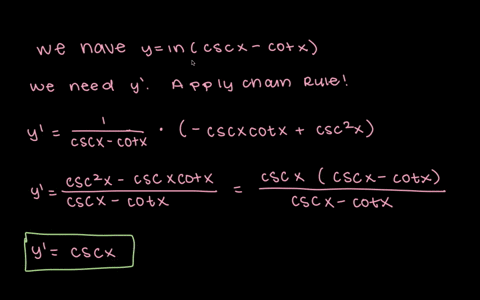 we have y=ln(cscx-cotx)
we need y'. Apply chain Rule!
y' = 1/(cscx-cotx) • (-cscxcotx + csc²x)
y' = (csc²x - cscxcotx)/(cscx-cotx) = (cscx (cscx-cotx))/(cscx-cotx)
y' = cscx